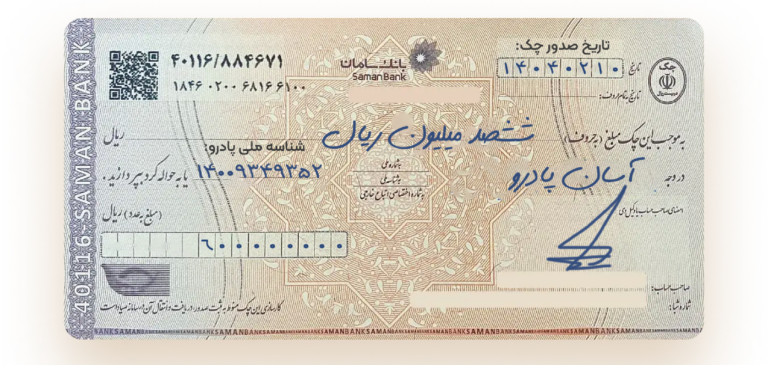 تاریخ صدور چک:
۴۰۱۱۶/۸۸۴۶۷۱
بانک سامان
Saman Bank
چک
تاریخ ۱۴۰۴۰۲۱۰
۱۸۴۶ ۰۲۰۰ ۶۸۱۶ ۶۱۰۰
تاریخ به تمام حروف:
به موجب این چک مبلغ (به حروف) ششصد میلیون ریال ریال
شناسه ملی پادرو:
در وجه آسان پادرو
به شماره ملی
به شناسه ملی
به شماره اختصاصی اتباع خارجی
۱۴۰۰۹۳۴۹۳۵۲ یا به حواله کرد بپردازید.
(مبلغ به عدد) ریال
۶۰۰۰۰۰۰۰۰
صاحب حساب:
شماره شبا:
کارسازی این چک منوط به ثبت صدور، دریافت و انتقال آن در سامانه صیاد است
40116 SAMAN BANK